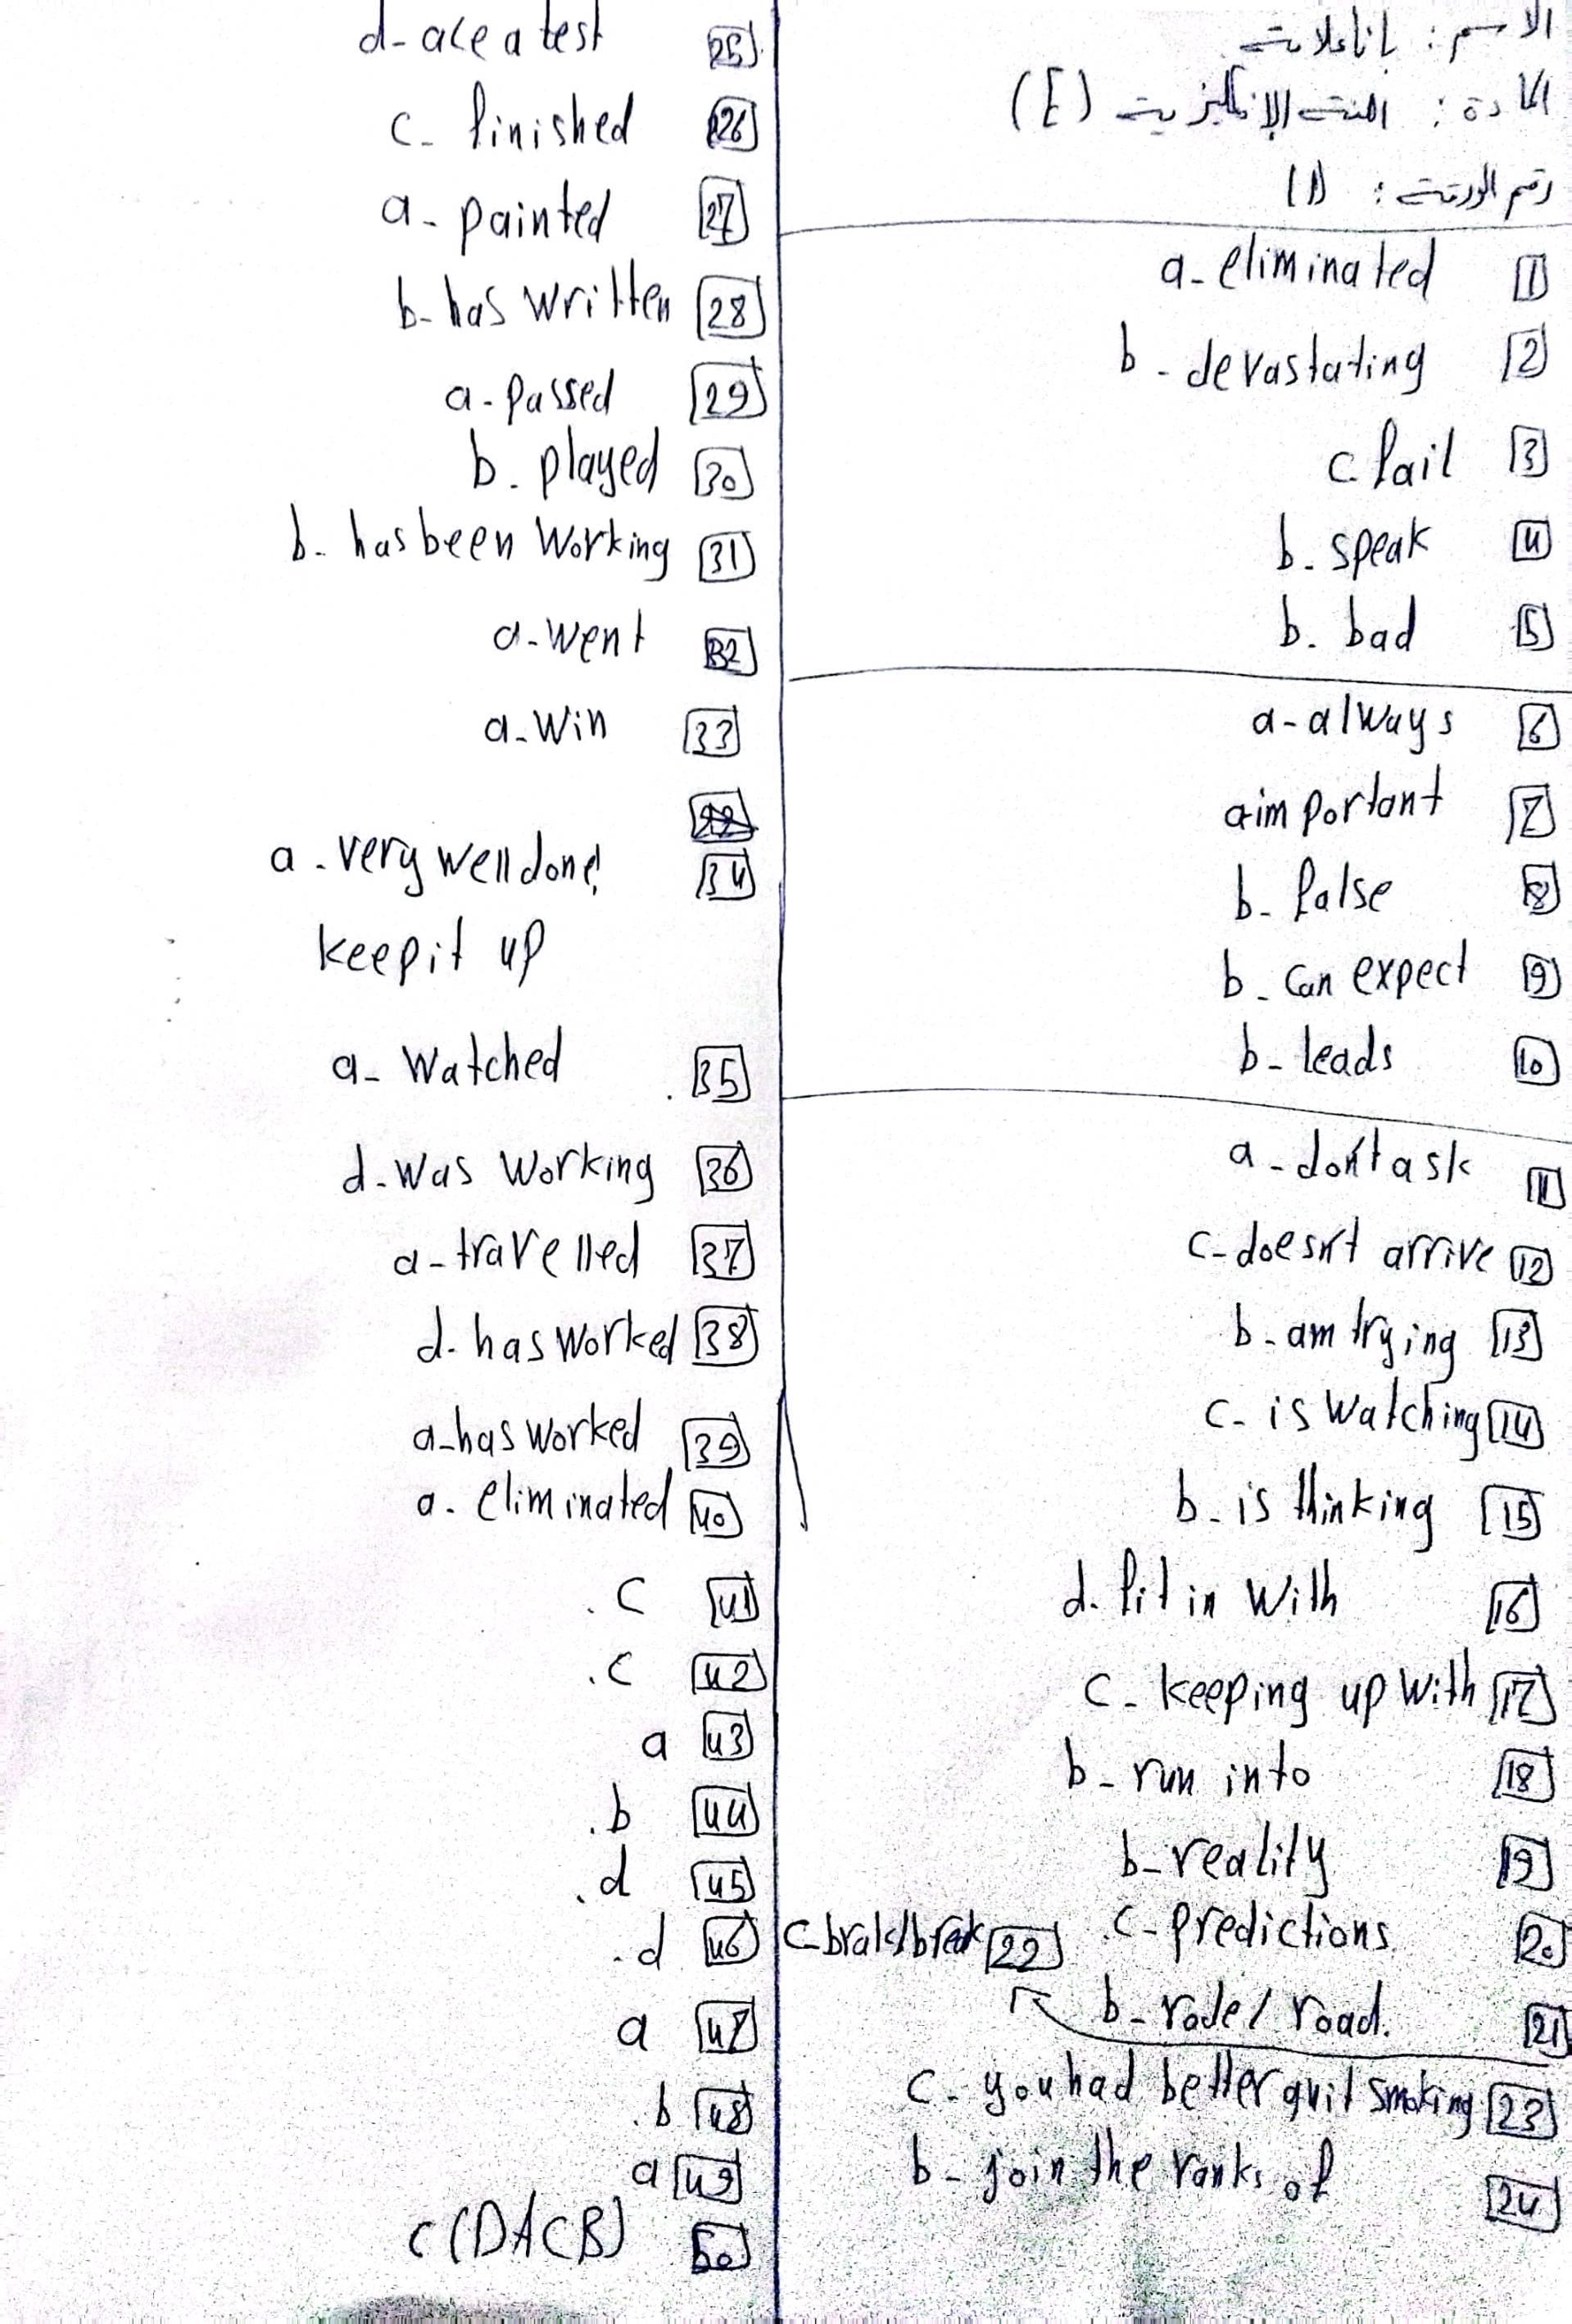 الاسم :
المادة : اللغة الإنكليزية (E)
رقم الورقة : (1)
1 a- eliminated
2 b - devastating
3 c. fail
4 b. speak
5 b. bad
6 a- always
7 a important
8 b- false
9 b- can expect
10 b- leads
11 a- don't ask
12 c- doesn't arrive
13 b- am trying
14 c- is watching
15 b- is thinking
16 d. fit in with
17 c- keeping up with
18 b- run into
19 b- reality
20 c- predictions
21 b- rode / road.
22 c- brake/break
23 c- you had better quit smoking
24 b- join the ranks of
25 d- ace a test
26 c- finished
27 a- painted
28 b- has written
29 a- passed
30 b. played
31 b- has been working
32 a- went
33 a- win
34 a - very well done!
keep it up
35 a- watched
36 d- was working
37 a- travelled
38 d- has worked
39 a- has worked
40 a- eliminated
41 . c
42 . c
43 a
44 . b
45 . d
46 . d
47 a
48 . b
49 a
50 c (DACB)